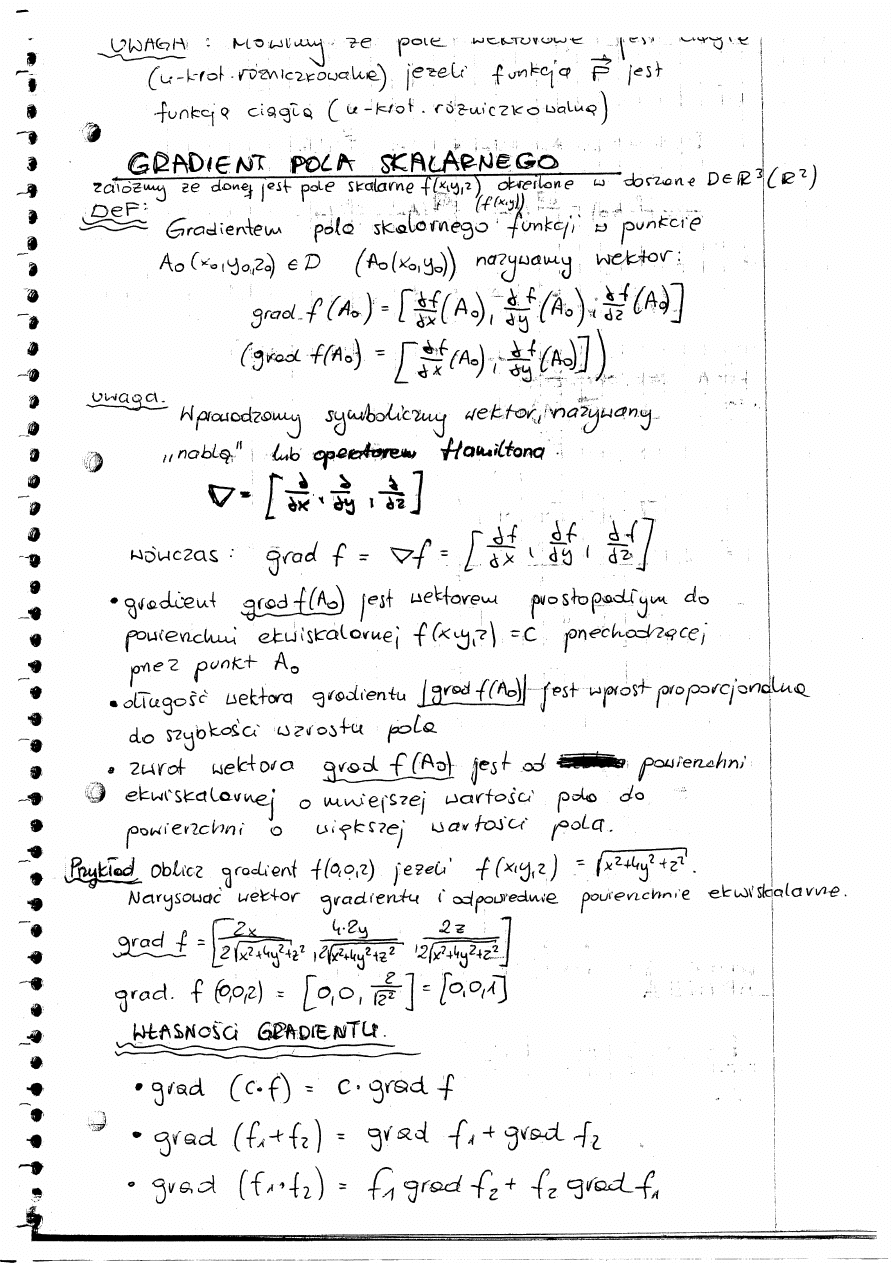 UWAGA : Mówimy że pole wektorowe jest ciągłe
(u-krot. różniczkowalne) jeżeli funkcja F⃗ jest
funkcją ciągłą (u-krot. różniczkowalną)
GRADIENT POLA SKALARNEGO
załóżmy że donej jest pole skalarne f(x,y,z) określone w obszarze D∈R³(R²)
(f(x,y))
DEF:
Gradientem pola skalarnego funkcji w punkcie
A₀(x₀,y₀,z₀) ∈ D (A₀(x₀,y₀)) nazywamy wektor:
grad f(A₀) = [∂f/∂x (A₀), ∂f/∂y (A₀), ∂f/∂z (A₀)]
(grad f(A₀) = [∂f/∂x (A₀), ∂f/∂y (A₀)])
uwaga.
Wprowadzamy symboliczny wektor, nazywany
„nablą" lub operatorem Hamiltona
∇ = [∂/∂x, ∂/∂y, ∂/∂z]
wówczas : grad f = ∇f = [∂f/∂x, ∂f/∂y, ∂f/∂z]
• gradient grad f(A₀) jest wektorem prostopadłym do
powierzchni ekwiskalarnej f(x,y,z) = c przechodzącej
przez punkt A₀
• długość wektora gradientu |grad f(A₀)| jest wprost proporcjonalna
do szybkości wzrostu pola
• zwrot wektora grad f(A₀) jest od powierzchni
ekwiskalarnej o mniejszej wartości pola do
powierzchni o większej wartości pola.
Przykład Oblicz gradient f(0,0,2) jeżeli f(x,y,z) = √(x²+4y²+z²).
Narysować wektor gradientu i odpowiednie powierzchnie ekwiskalarne.
grad f = [2x/(2√(x²+4y²+z²)), 4·2y/(2√(x²+4y²+z²)), 2z/(2√(x²+4y²+z²))]
grad. f (0,0,2) = [0,0, 2/√2²] = [0,0,1]
WŁASNOŚCI GRADIENTU.
• grad (c·f) = c·grad f
• grad (f₁+f₂) = grad f₁ + grad f₂
• grad (f₁·f₂) = f₁ grad f₂ + f₂ grad f₁